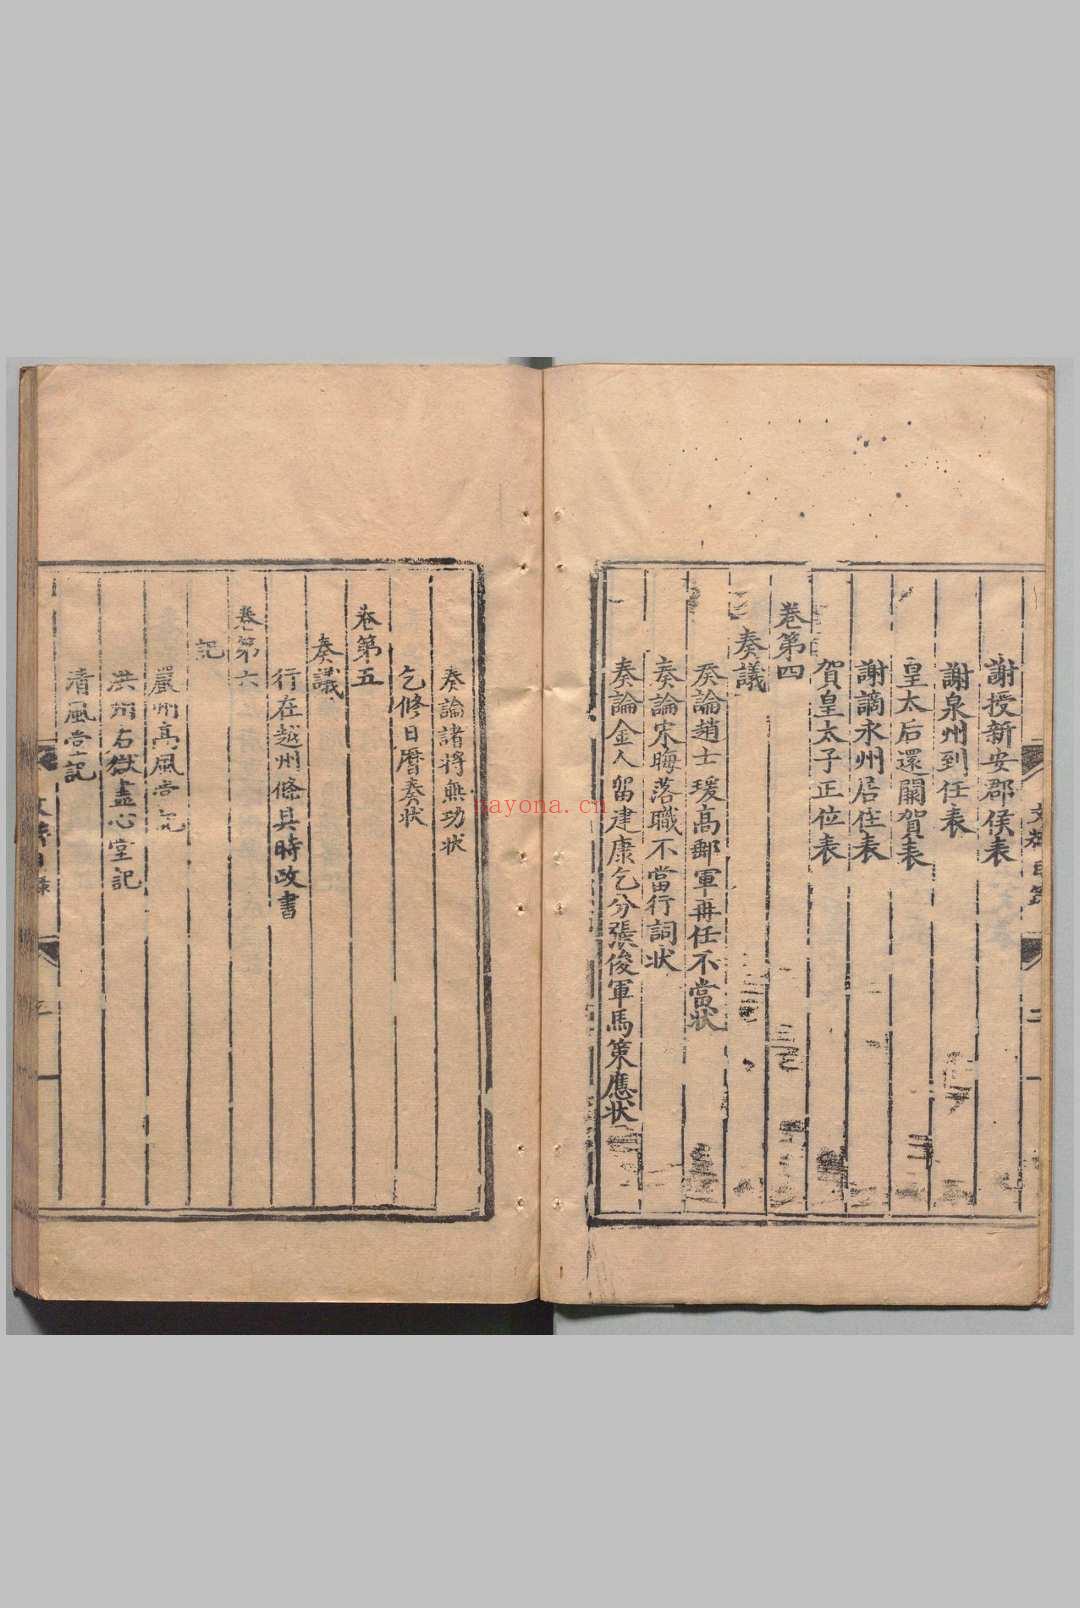 謝授新安郡侯表
謝泉州到任表
皇太后還闕賀表
謝謫永州居住表
賀皇太子正位表
卷第四
奏議
奏論趙士瑗高郵軍再任不當狀
奏論宋晦落職不當行詞狀
奏論金人留建康乞分張俊軍馬策應狀
奏論諸將無功狀
乞修日曆奏狀
卷第五
奏議
行在越州條具時政書
卷第六
記
嚴州高風堂記
洪州右獄盡心堂記
清風堂記
nayona.cn